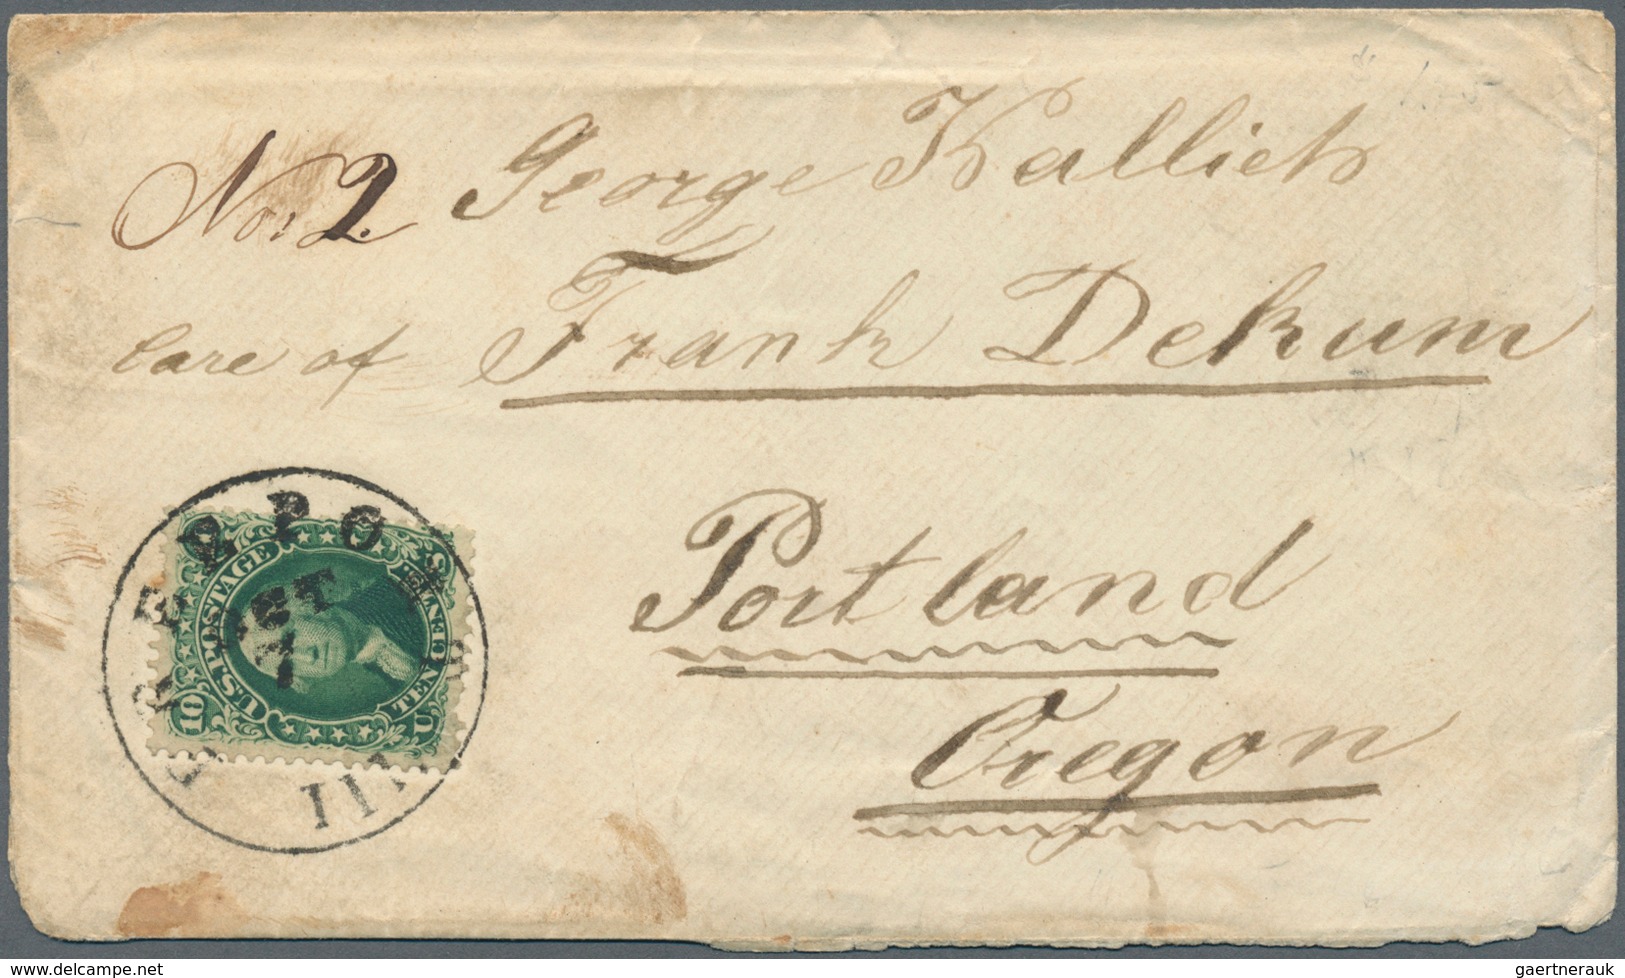 No: 2. George Kallich
Care of Frank Dekum
Portland
Oregon
FREEPORT
OCT
7
ILL
U.S. POSTAGE
TEN CENTS
10
U
S
delcampe.net
gaertnerauk